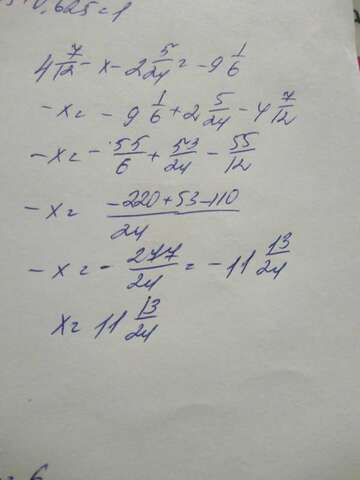 0,625=1
4 7/12 - x - 2 5/24 = -9 1/6
-x = -9 1/6 + 2 5/24 - 4 7/12
-x = -55/6 + 53/24 - 55/12
-x = (-220+53-110)/24
-x = -277/24 = -11 13/24
x = 11 13/24